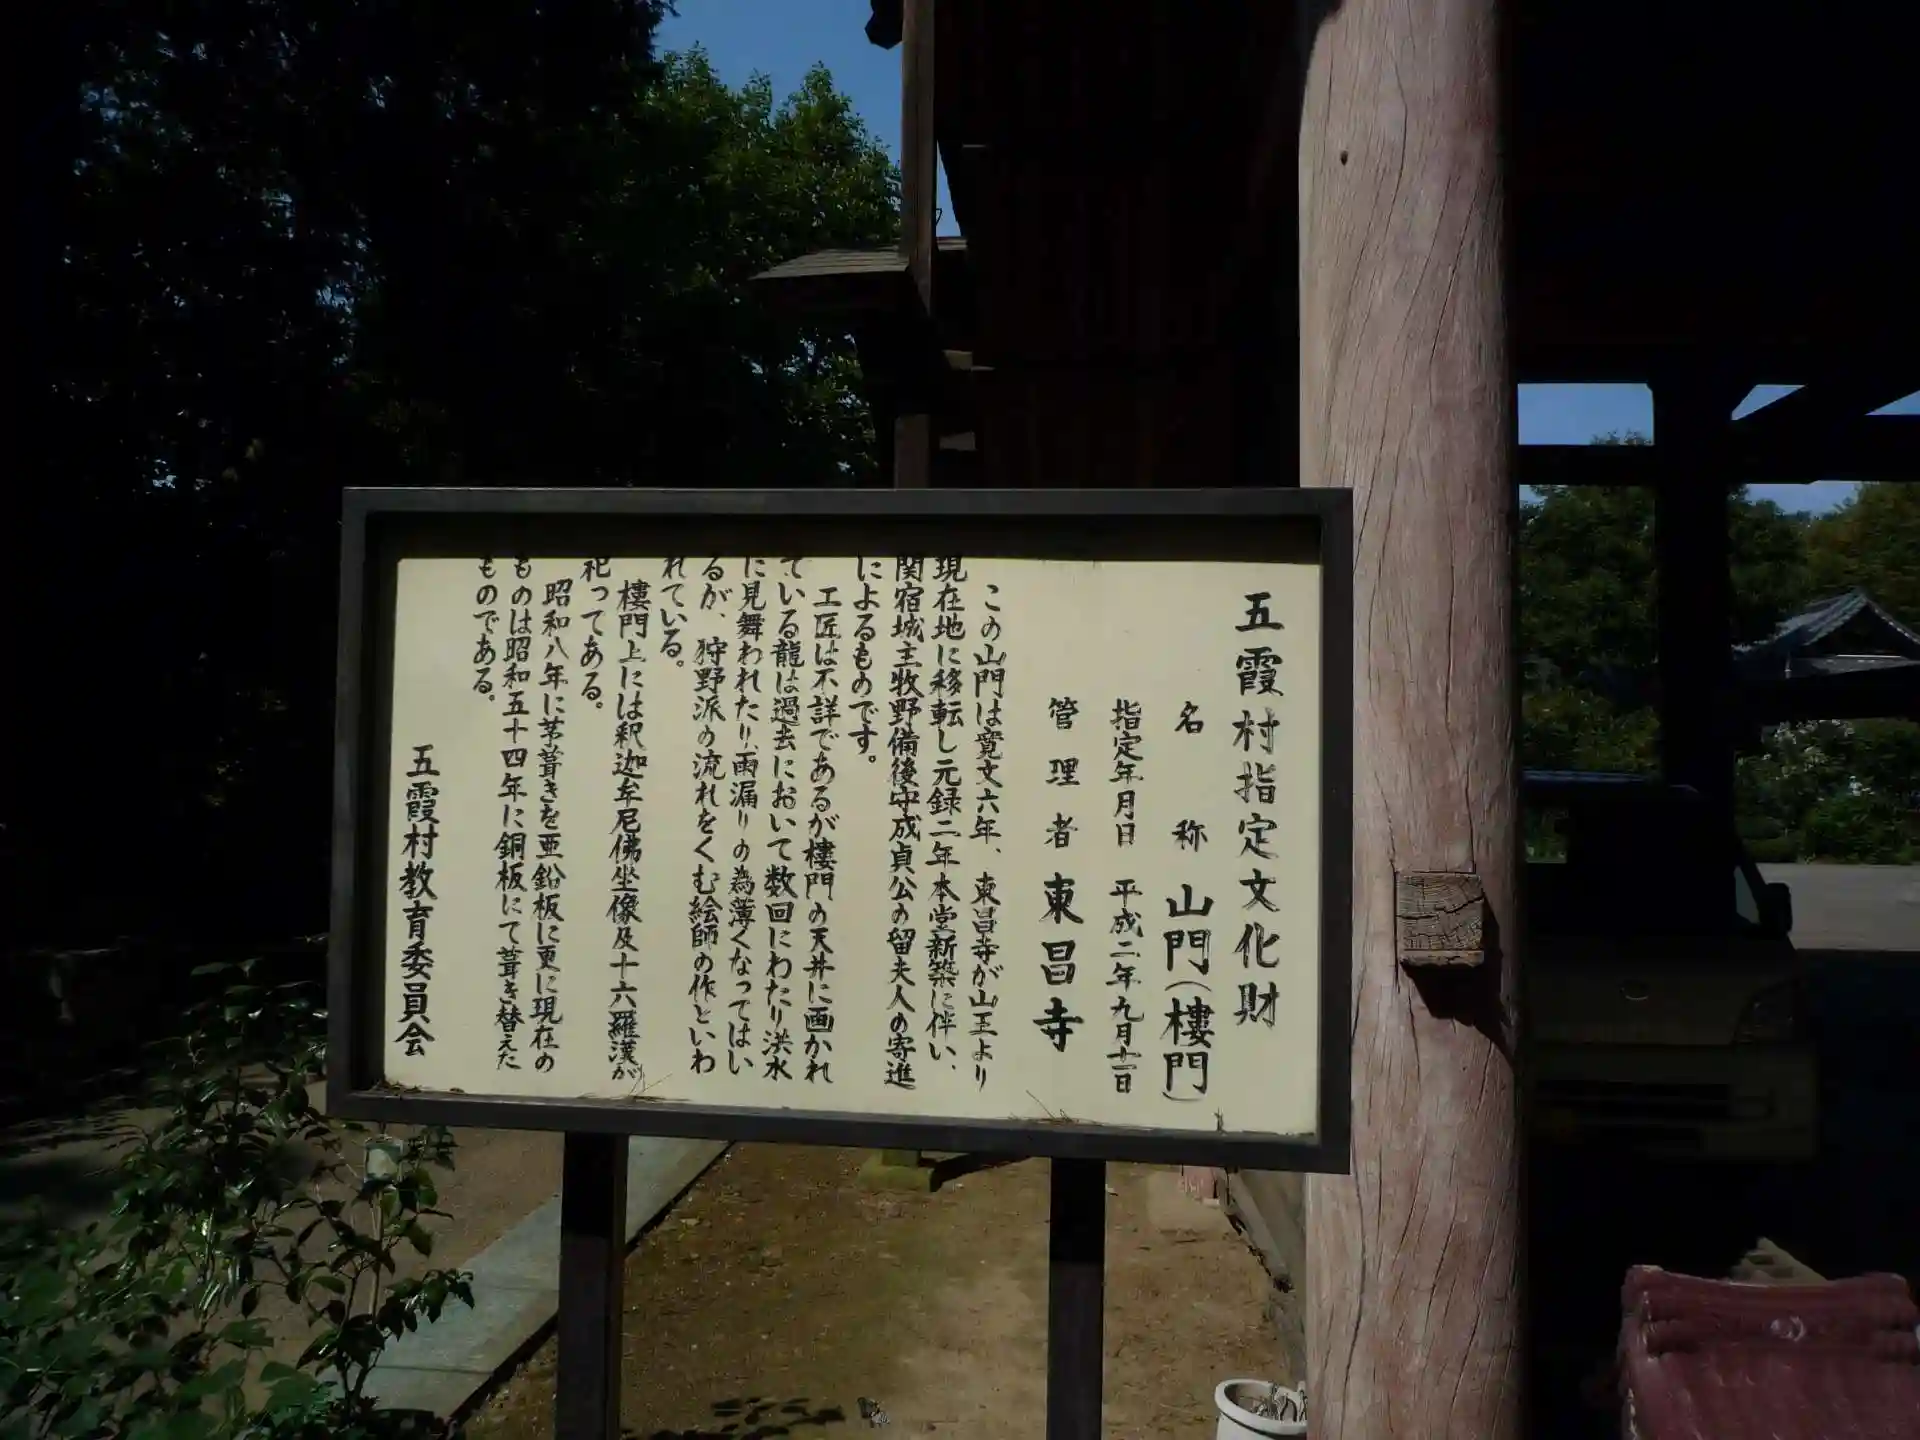 五霞村指定文化財
名称 山門(樓門)
指定年月日 平成二年九月十一日
管理者 東昌寺
この山門は寛文六年、東昌寺が山王より
現在地に移転し元録二年本堂新築に伴い、
関宿城主牧野備後守成貞公の留夫人の寄進
によるものです。
工匠は不詳であるが樓門の天井に画かれ
ている龍は過去において数回にわたり洪水
に見舞われたり、雨漏りの為薄くなってはい
るが、狩野派の流れをくむ絵師の作といわ
れている。
樓門上には釈迦牟尼佛坐像及十六羅漢が
祀ってある。
昭和八年に茅葺きを亜鉛板に更に現在の
ものは昭和五十四年に銅板にて葺き替えた
ものである。
五霞村教育委員会